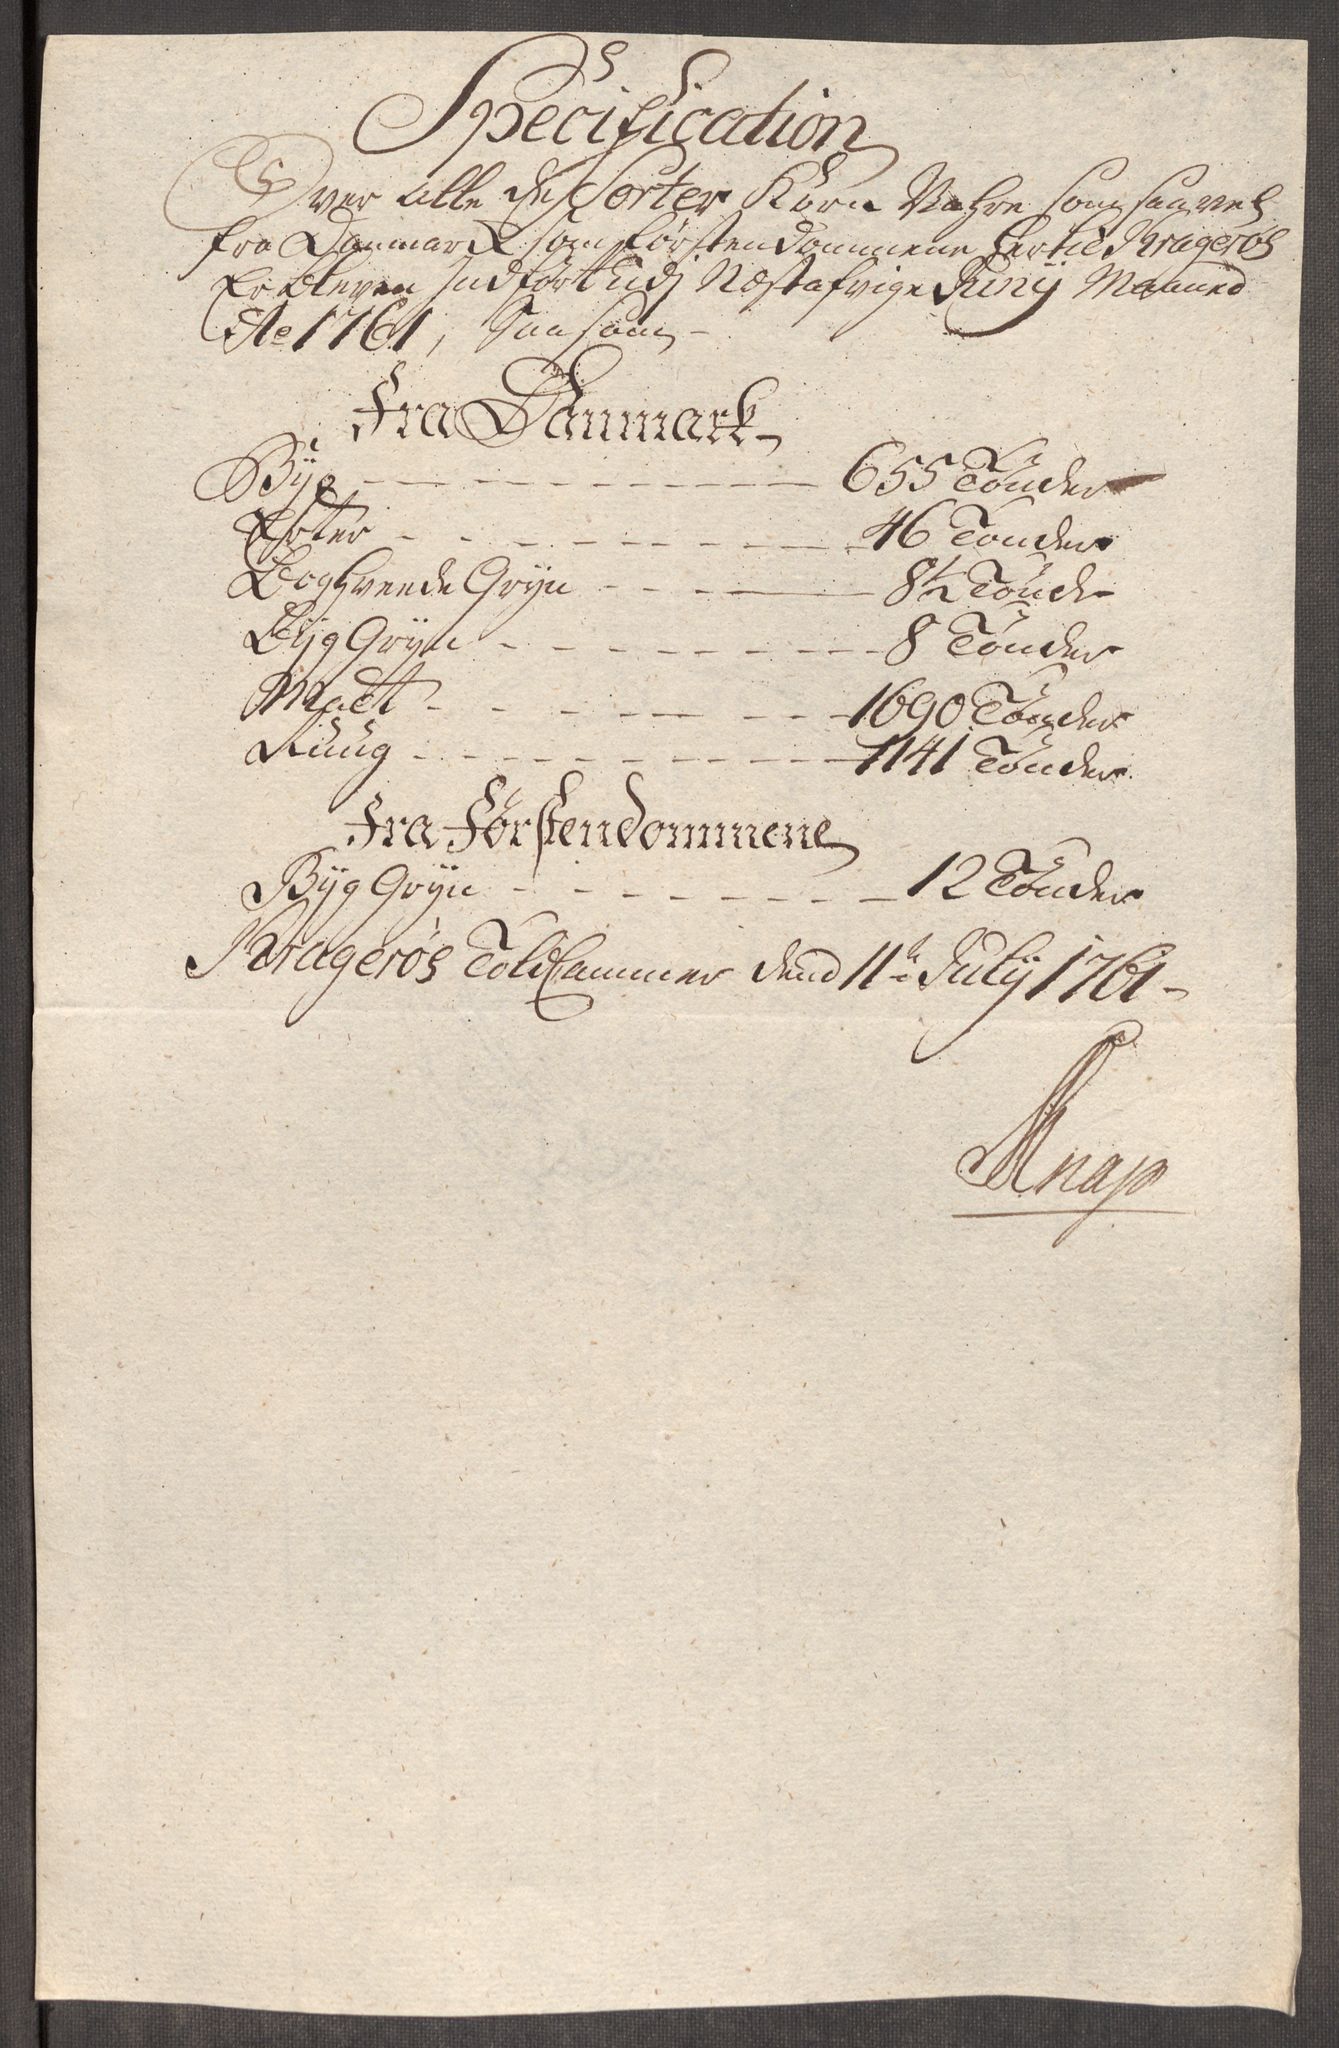 Specification
Over alle de Sorter Korn Vahre som saavel
fra Danmark som Førstendommene hertil Kragerøe
Er bleven Indført udj Næstafvigte Junij Maaned
Ao 1761, Saasom
Fra Danmark
Byg 655 Tønder
Erter 46 Tønder
Boghveede Gryn 8½ Tønde
Byg Gryn 8 Tønder
Malt 1690 Tønder
Ruug 1141 Tønder
Fra Førstendommene
Byg Gryn 12 Tønder
Kragerøe Toldkammer dend 11te July 1761
Knap